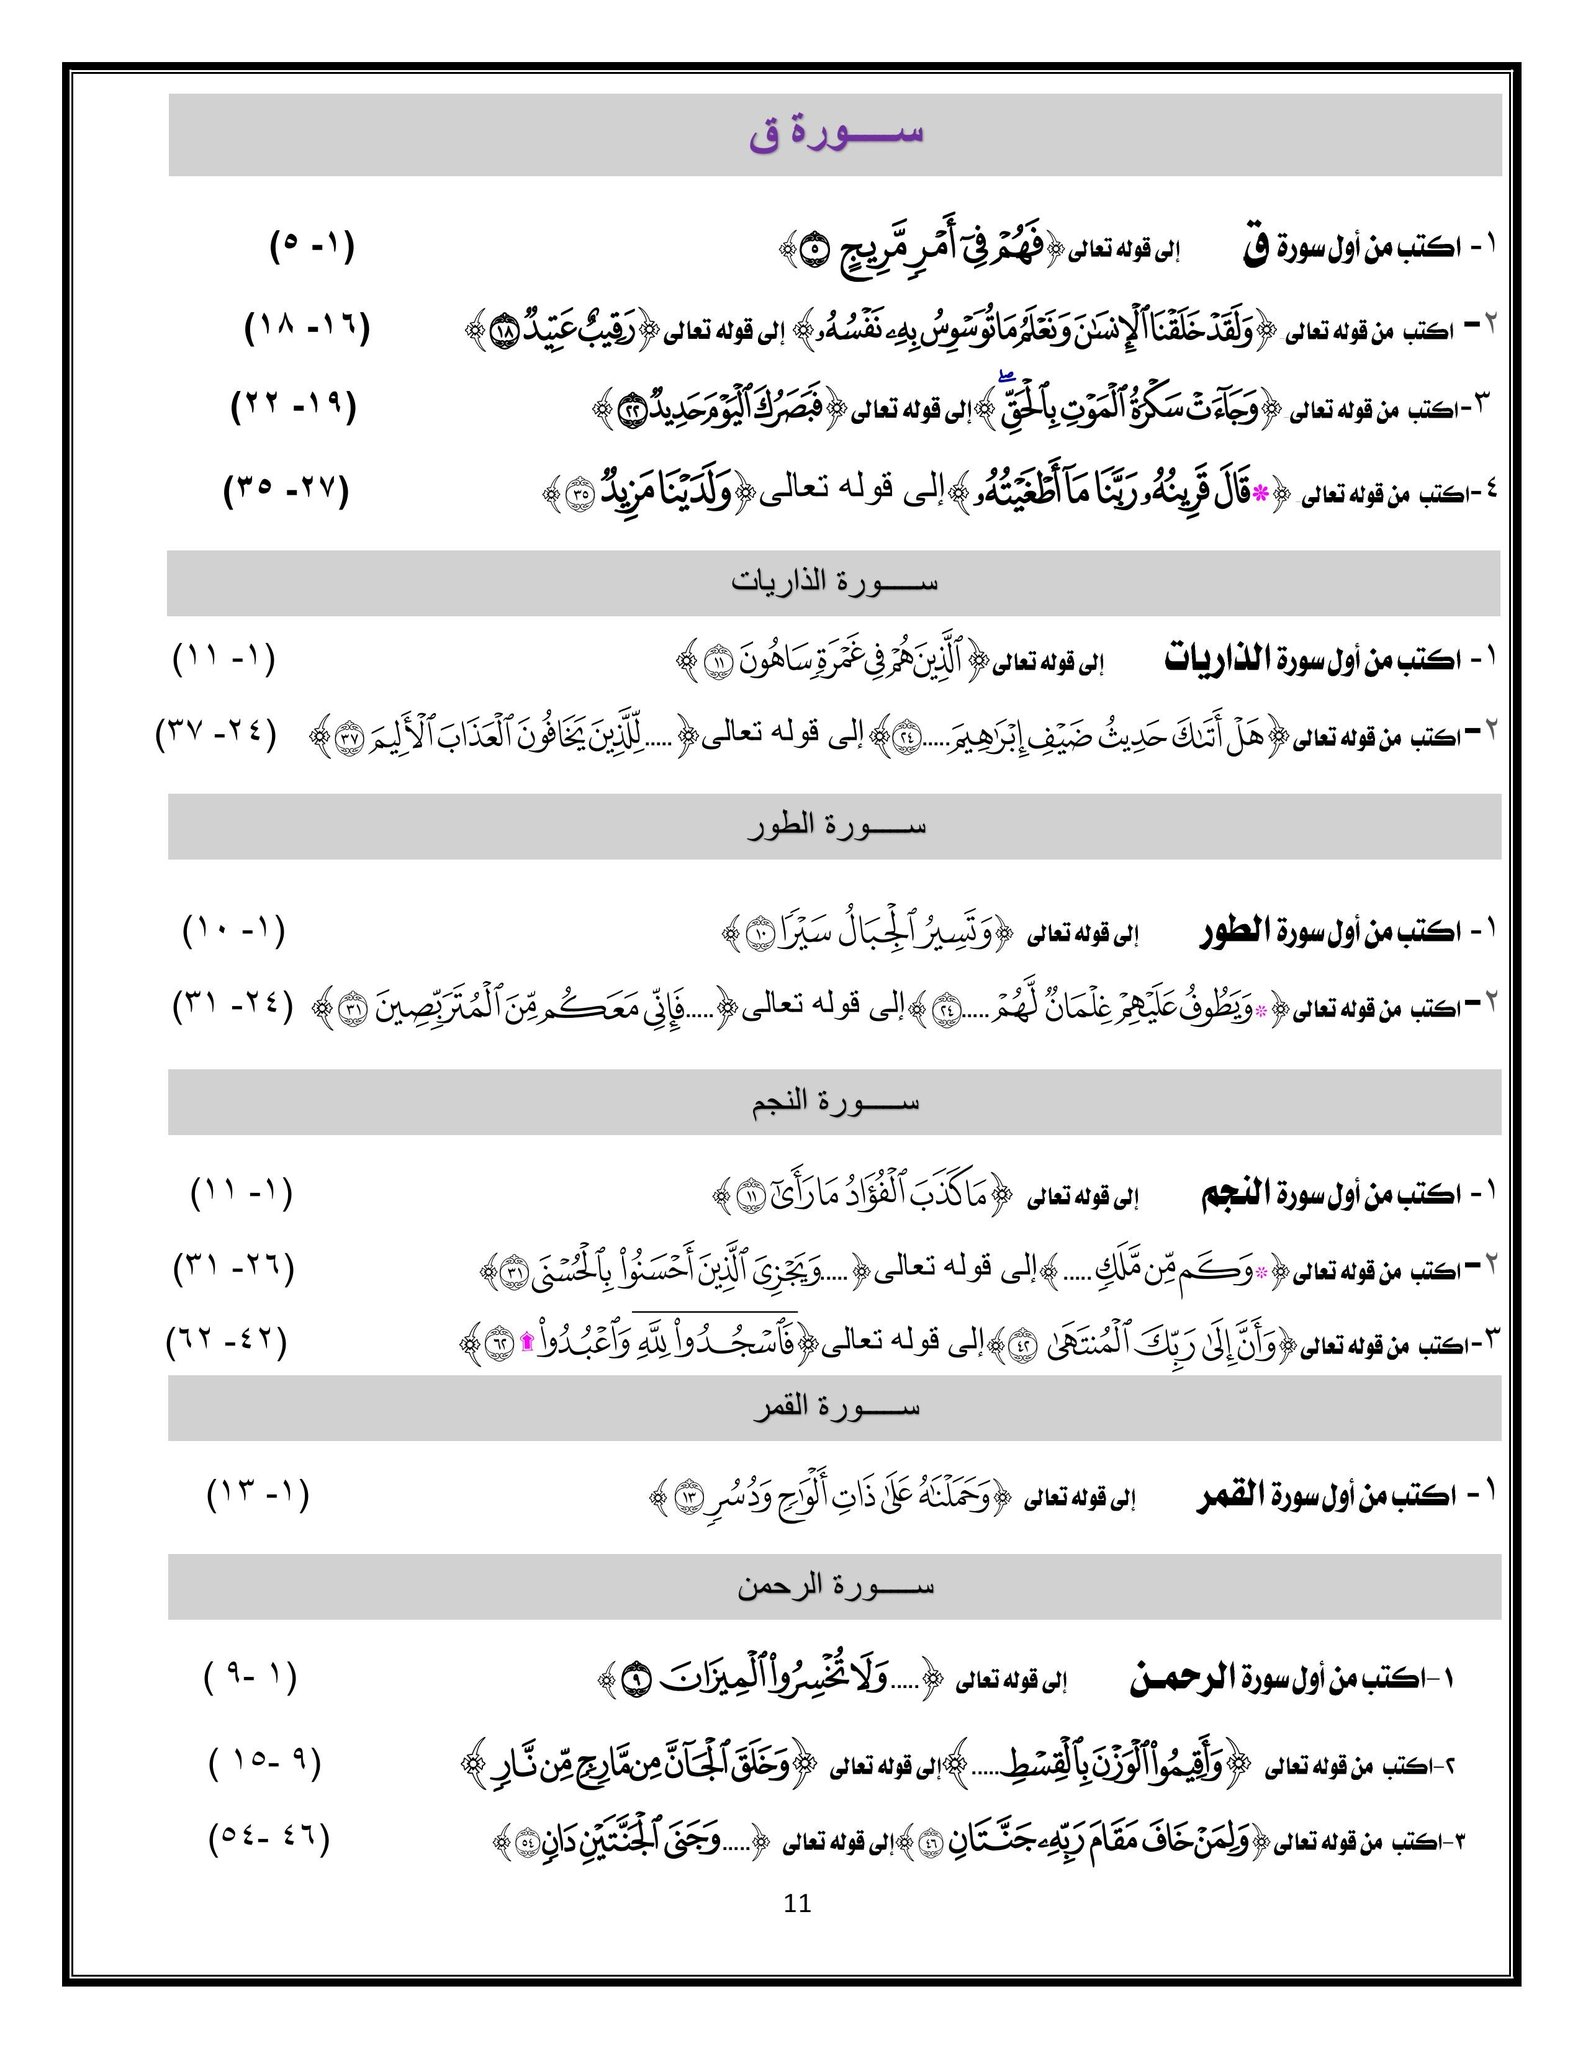 ســـورة ق
١- اكتب من أول سورة ق إلى قوله تعالى ﴿فَهُمۡ فِيٓ أَمۡرٖ مَّرِيجٍ ٥﴾ (١- ٥)
٢- اكتب من قوله تعالى ﴿وَلَقَدۡ خَلَقۡنَا ٱلۡإِنسَٰنَ وَنَعۡلَمُ مَا تُوَسۡوِسُ بِهِۦ نَفۡسُهُۥ﴾ إلى قوله تعالى ﴿رَقِيبٌ عَتِيدٞ ١٨﴾ (١٦- ١٨)
٣-اكتب من قوله تعالى ﴿وَجَآءَتۡ سَكۡرَةُ ٱلۡمَوۡتِ بِٱلۡحَقِّۖ﴾ إلى قوله تعالى ﴿فَبَصَرُكَ ٱلۡيَوۡمَ حَدِيدٞ ٢٢﴾ (١٩- ٢٢)
٤-اكتب من قوله تعالى ﴿* قَالَ قَرِينُهُۥ رَبَّنَا مَآ أَطۡغَيۡتُهُۥ﴾ إلى قوله تعالى ﴿وَلَدَيۡنَا مَزِيدٞ ٣٥﴾ (٢٧- ٣٥)
ســـورة الذاريات
١- اكتب من أول سورة الذاريات إلى قوله تعالى ﴿ٱلَّذِينَ هُمۡ فِي غَمۡرَةٖ سَاهُونَ ١١﴾ (١- ١١)
٢- اكتب من قوله تعالى ﴿هَلۡ أَتَىٰكَ حَدِيثُ ضَيۡفِ إِبۡرَٰهِيمَ.....٢٤﴾ إلى قوله تعالى ﴿.....لِّلَّذِينَ يَخَافُونَ ٱلۡعَذَابَ ٱلۡأَلِيمَ ٣٧﴾ (٢٤- ٣٧)
ســـورة الطور
١- اكتب من أول سورة الطور إلى قوله تعالى ﴿وَتَسِيرُ ٱلۡجِبَالُ سَيۡرٗا ١٠﴾ (١- ١٠)
٢- اكتب من قوله تعالى ﴿* وَيَطُوفُ عَلَيۡهِمۡ غِلۡمَانٞ لَّهُمۡ.....٢٤﴾ إلى قوله تعالى ﴿.....فَإِنِّي مَعَكُم مِّنَ ٱلۡمُتَرَبِّصِينَ ٣١﴾ (٢٤- ٣١)
ســـورة النجم
١- اكتب من أول سورة النجم إلى قوله تعالى ﴿مَا كَذَبَ ٱلۡفُؤَادُ مَا رَأَىٰٓ ١١﴾ (١- ١١)
٢- اكتب من قوله تعالى ﴿* وَكَم مِّن مَّلَكٖ .....﴾ إلى قوله تعالى ﴿.....وَيَجۡزِيَ ٱلَّذِينَ أَحۡسَنُواْ بِٱلۡحُسۡنَى ٣١﴾ (٢٦- ٣١)
٣-اكتب من قوله تعالى ﴿وَأَنَّ إِلَىٰ رَبِّكَ ٱلۡمُنتَهَىٰ ٤٢﴾ إلى قوله تعالى ﴿فَٱسۡجُدُواْۤ لِلَّهِۤ وَٱعۡبُدُواْ۩ ٦٢﴾ (٤٢- ٦٢)
ســـورة القمر
١- اكتب من أول سورة القمر إلى قوله تعالى ﴿وَحَمَلۡنَٰهُ عَلَىٰ ذَاتِ أَلۡوَٰحٖ وَدُسُرٖ ١٣﴾ (١- ١٣)
ســـورة الرحمن
١-اكتب من أول سورة الرحمـن إلى قوله تعالى ﴿.....وَلَا تُخۡسِرُواْ ٱلۡمِيزَانَ ٩﴾ (١ -٩ )
٢-اكتب من قوله تعالى ﴿وَأَقِيمُواْ ٱلۡوَزۡنَ بِٱلۡقِسۡطِ.....﴾ إلى قوله تعالى ﴿وَخَلَقَ ٱلۡجَآنَّ مِن مَّارِجٖ مِّن نَّارٖ﴾ (٩ -١٥ )
٣-اكتب من قوله تعالى ﴿وَلِمَنۡ خَافَ مَقَامَ رَبِّهِۦ جَنَّتَانِ ٤٦﴾ إلى قوله تعالى ﴿.....وَجَنَى ٱلۡجَنَّتَيۡنِ دَانٖ ٥٤﴾ (٤٦ -٥٤)
11